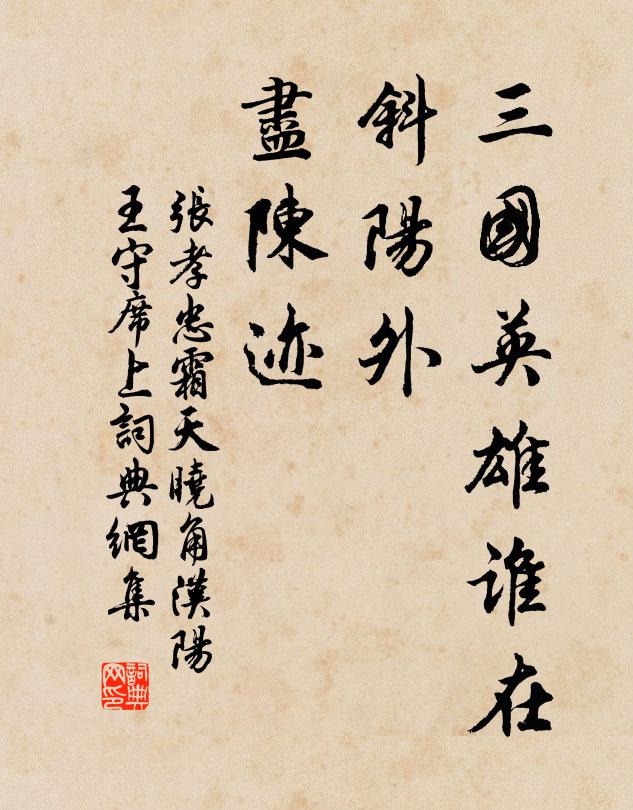 三國英雄誰在
斜陽外
盡陳迹
張孝忠霜天曉角漢陽
王守席上詞典網集
詞典
网印